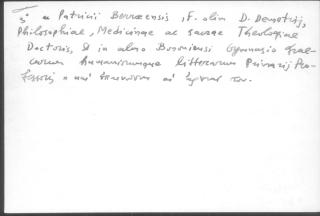 a Patricii Berroeensis, F. olim D. Demetrij,
Philosophiae, Medicinae ac sacrae Theologiae
Doctoris, & in almo Bononiensi Gymnasio Grae-
carum humaniorumque litterarum Primarij Pro-
fessoris